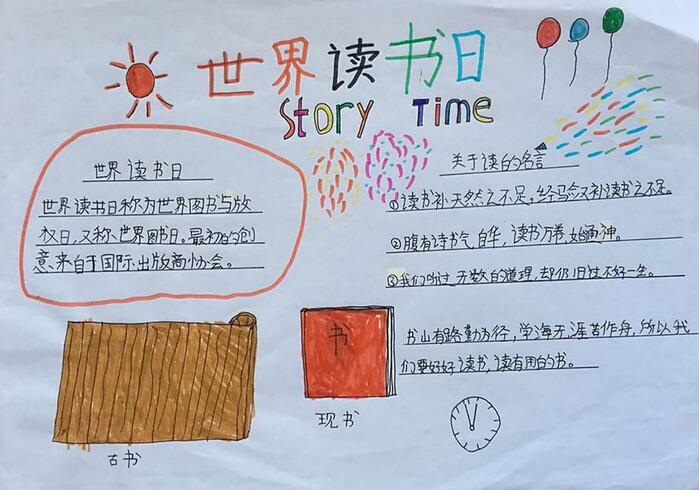 世界读书日
Story Time
世界读书日
世界读书日称为世界图书与放
权日,又称、世界图书日。最初的创
意来自于国际出版商协会。
关于读的名言
①读书补天然之不足,经马会又补读书之不足。
②腹有诗书气自华,读书万卷始通神。
③我们听过无数的道理,却仍旧过不好一生。
书山有路勤为径,学海无涯苦作舟,所以我
们要好好读书,读有用的书。
书
古书
现书